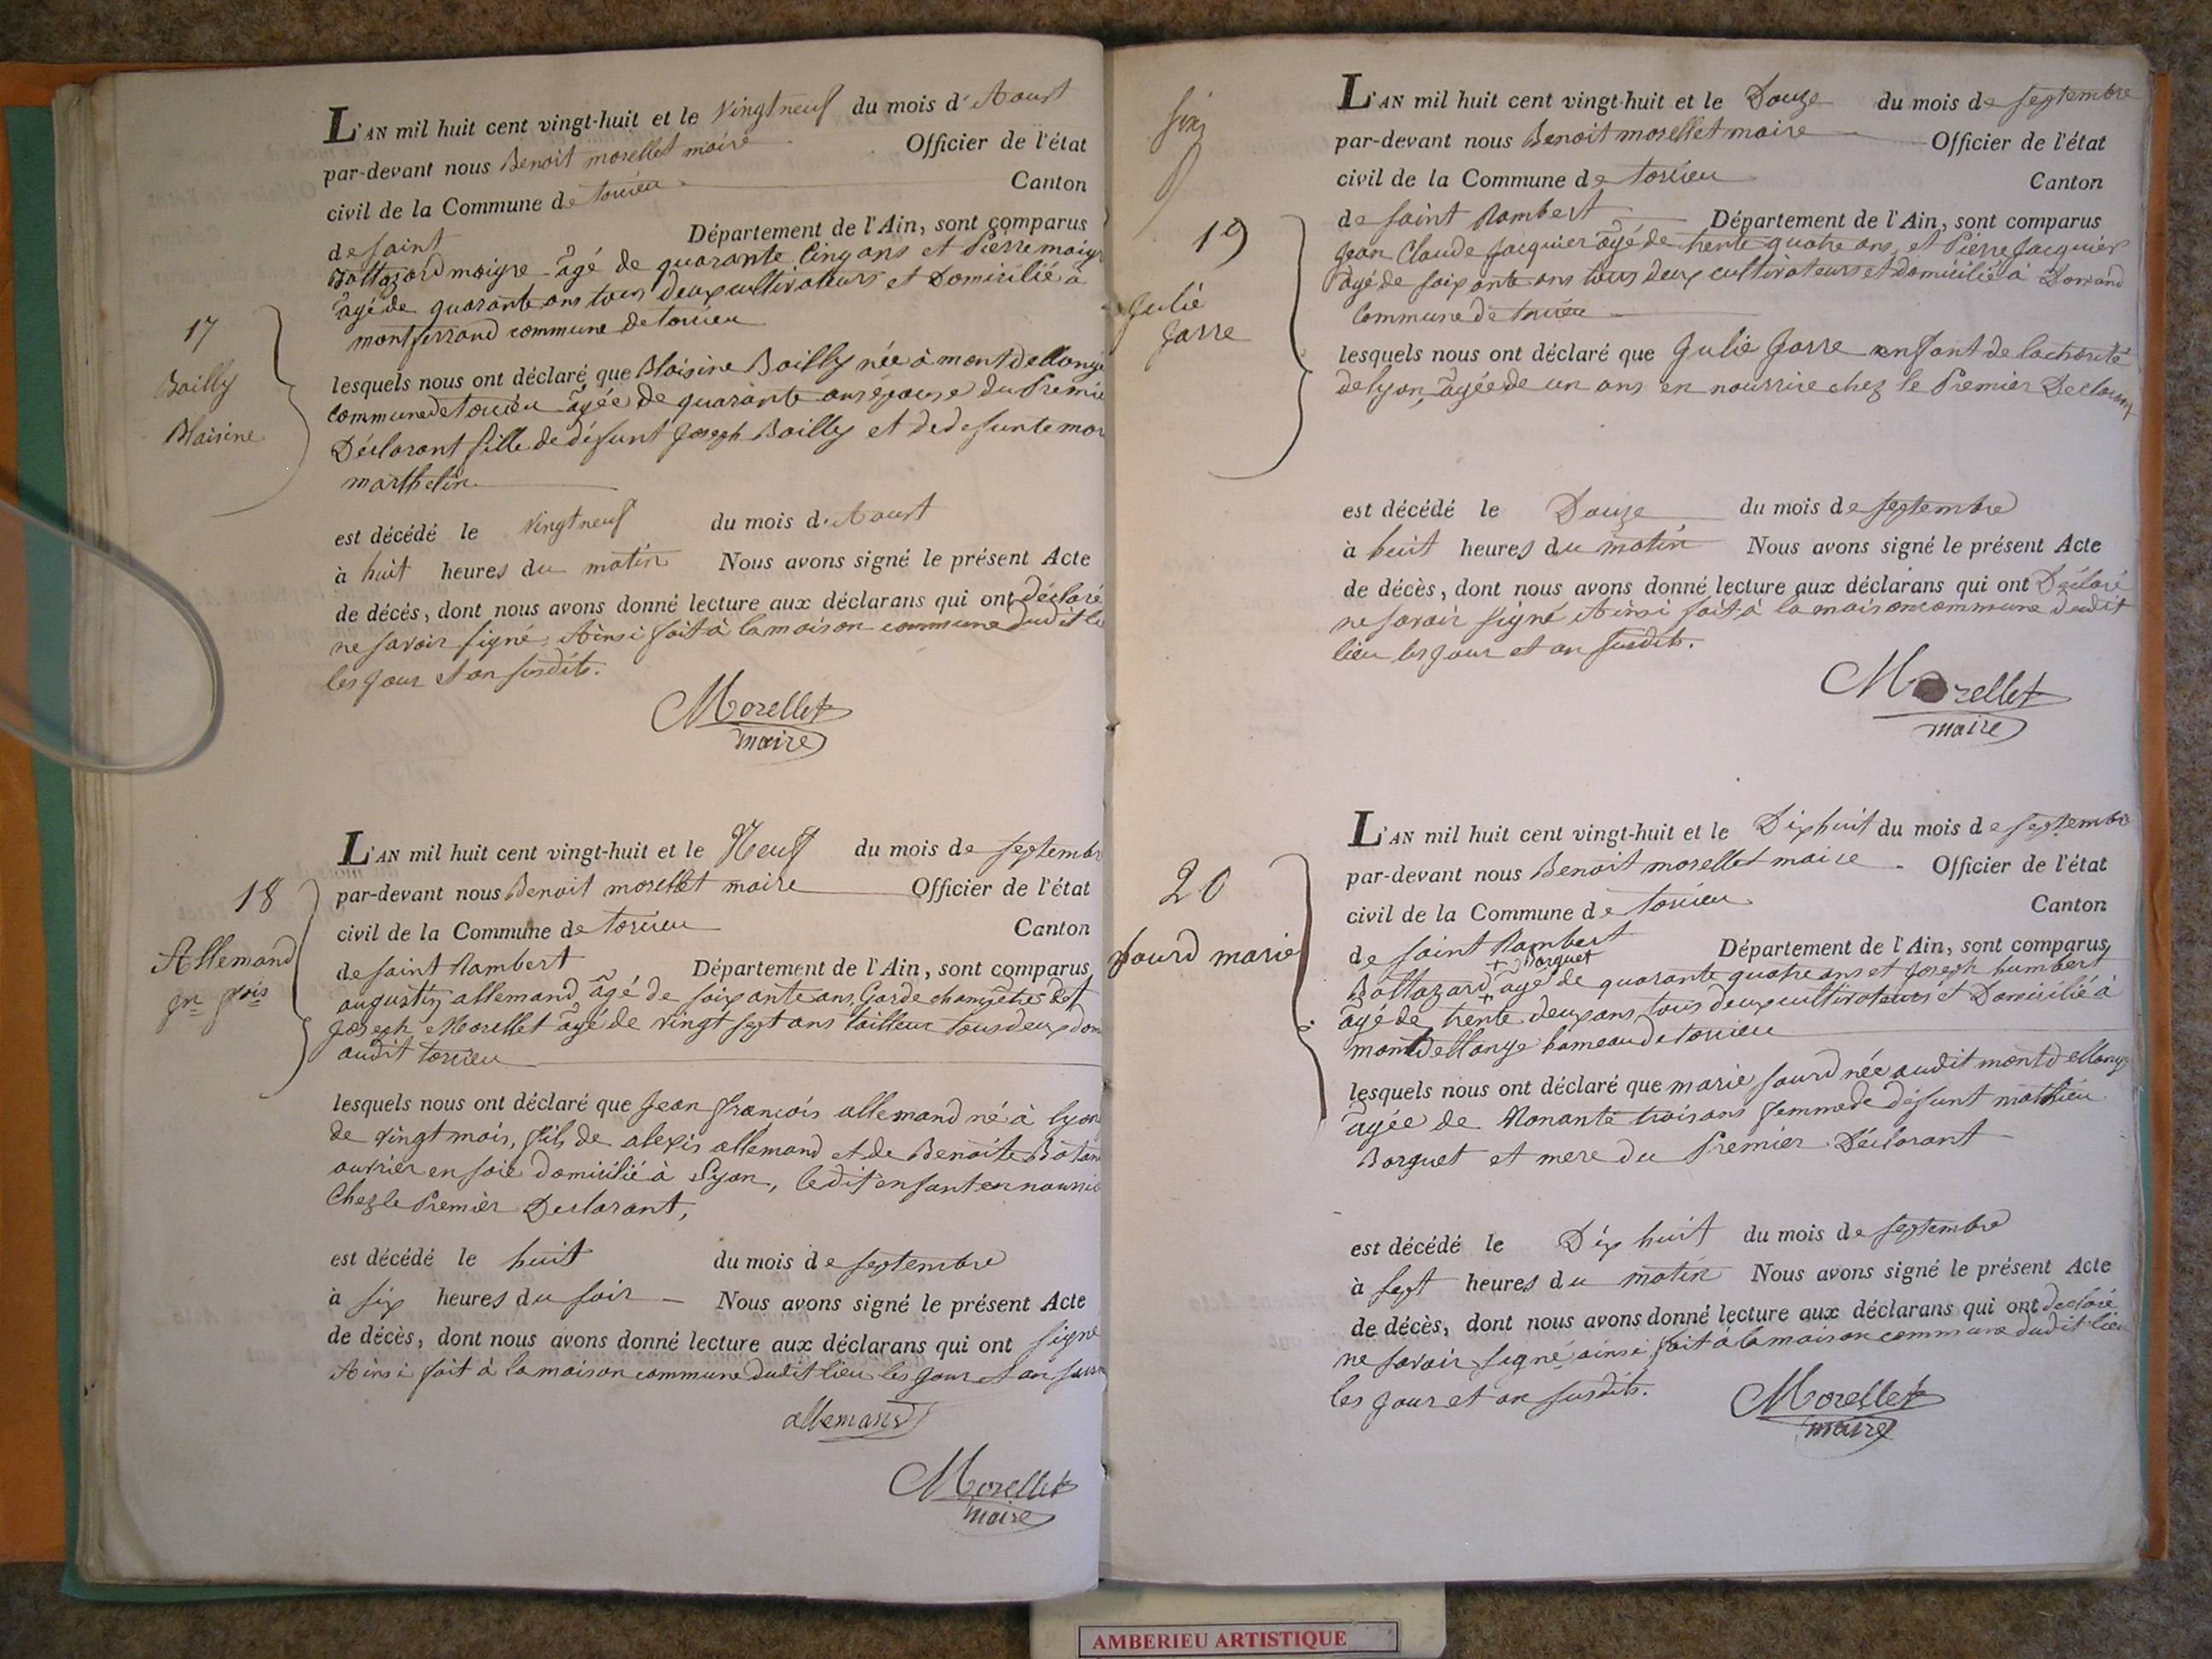 L'AN mil huit cent vingt-huit et le vingt neuf du mois d'Aoust
par-devant nous Benoit morellet maire Officier de l'état
civil de la Commune de torcieu Canton
de saint Département de l'Ain, sont comparus
Baltazard maigre âgé de quarante Cinq ans et Pierre maigr
âgé de quarante ans tous deux cultivateurs et Domicilié à
montferrand commune de torcieu
17
Bailly
Blaisine
lesquels nous ont déclaré que Blaisine Bailly née à montdellonge
commune de torcieu âgée de quarante ans épouse du Premie
Déclarant fille de défunt Joseph Bailly et de defunte mar
marthelin
est décédé le vingt neuf du mois d'Aoust
à huit heures du matin Nous avons signé le présent Acte
de décés, dont nous avons donné lecture aux déclarans qui ont déclaré
ne savoir signé. Ainsi fait à la maison commune dudit li
les jour et an susdits.
Morellet
maire
L'AN mil huit cent vingt-huit et le Neuf du mois de septembr
par-devant nous Benoit morellet maire Officier de l'état
civil de la Commune de torcieu Canton
de saint Rambert Département de l'Ain, sont comparus
augustin allemand, âgé de soixante ans, Garde champêtre et
Joseph Morellet âgé de vingt sept ans tailleur tous deux dom
audit torcieu
18
Allemand
jn fois
lesquels nous ont déclaré que Jean françois allemand né à lyon
de vingt mois, fils de alexis allemand et de Benoite Batan
ouvrier en soie domicilié à Lyon, ledit enfant en nourric
Chez le Premier Declarant,
est décédé le huit du mois de septembre
à six heures du soir Nous avons signé le présent Acte
de décès, dont nous avons donné lecture aux déclarans qui ont signé
Ainsi fait à la maison commune dudit lieu les jour et an
allemand
Morellet
maire
six
L'AN mil huit cent vingt-huit et le Douze du mois de septembre
par-devant nous Benoit morellet maire Officier de l'état
civil de la Commune de torcieu Canton
de saint Rambert Département de l'Ain, sont comparus
Jean Claude Jacquier âgé de trente quatre ans, et Pierre Jacquier
âgé de soixante ans tous deux cultivateurs et domicilié à Dorvand
Commune de torcieu
19
Julie
Jarre
lesquels nous ont déclaré que Julie Jarre enfant de la charité
de lyon, âgée de un ans en nourrice chez le Premier Declarant
est décédé le Douze du mois de septembre
à huit heures du matin Nous avons signé le présent Acte
de décès, dont nous avons donné lecture aux déclarans qui ont Déclaré
ne savoir signé Ainsi fait à la maison commune dudit
lieu les jour et an susdits.
Morellet
maire
L'AN mil huit cent vingt-huit et le Dix huit du mois de septembre
par-devant nous Benoit morellet maire Officier de l'état
civil de la Commune de torcieu Canton
de saint Rambert Département de l'Ain, sont comparus
+ Borguet
Baltazard + âgé de quarante quatre ans et Joseph humbert
âgé de trente deux ans, tous deux cultivateurs et Domicilié à
montdellonge hameau de torcieu
20
sourd marie
lesquels nous ont déclaré que marie sourd née audit montdellonge
âgée de Nonante trois ans femme de défunt mathieu
Borguet et mere du Premier Déclarant
est décédé le Dix huit du mois de septembre
à sept heures du matin Nous avons signé le présent Acte
de décès, dont nous avons donné lecture aux déclarans qui ont declaré
ne savoir signé, ainsi fait à la maison commune dudit lieu
les jour et an susdits.
Morellet
maire
AMBERIEU ARTISTIQUE